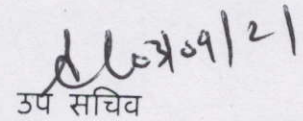 03/09/21
उप सचिव